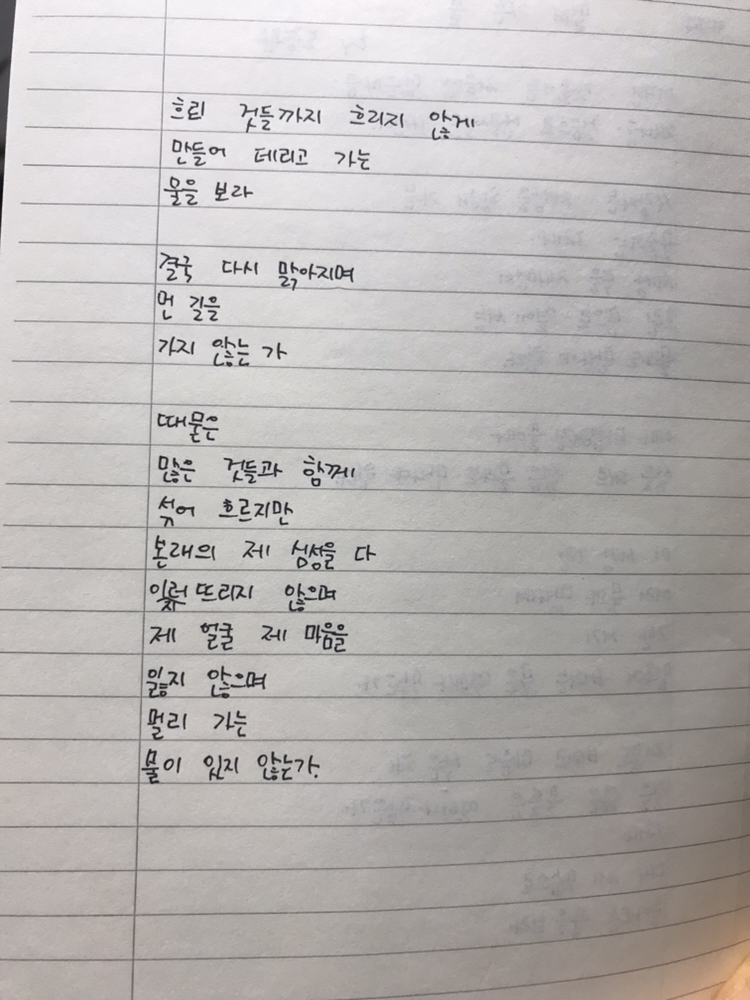 흐린 것들까지 흐리지 않게
만들어 데리고 가는
물을 보라
결국 다시 맑아지며
먼 길을
가지 않는 가
때묻은
많은 것들과 함께
섞어 흐르지만
본래의 제 심성을 다
잃지 않으며
제 얼굴 제 마음을
잃지 않으며
멀리 가는
물이 있지 않는가.